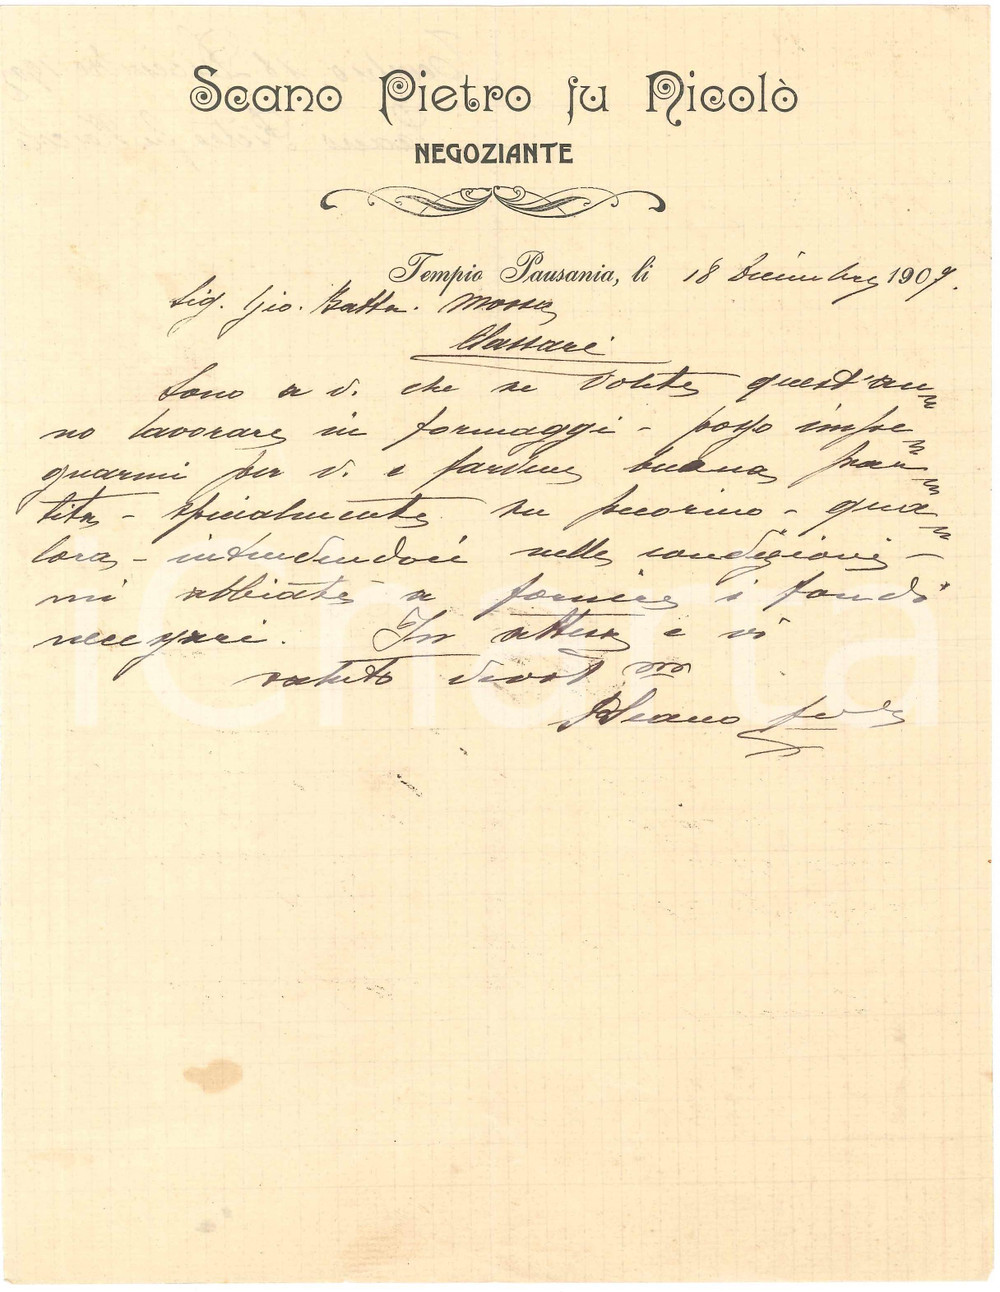 Scano Pietro fu Nicolò
NEGOZIANTE
Tempio Pausania, lì 18 Dicembre 1909.
Sig. Gio. Batta. Mossa
Sassari
Sono a v. che se volete quest'an=
no lavorare in formaggi - posso impe=
gnarmi per v. e farvene buona par=
tita - specialmente su pecorino - qua=
lora - intendendoci nelle condizioni -
mi abbiate a fornire i fondi
necessari. In attesa e vi
saluto devot mo
PScano fu